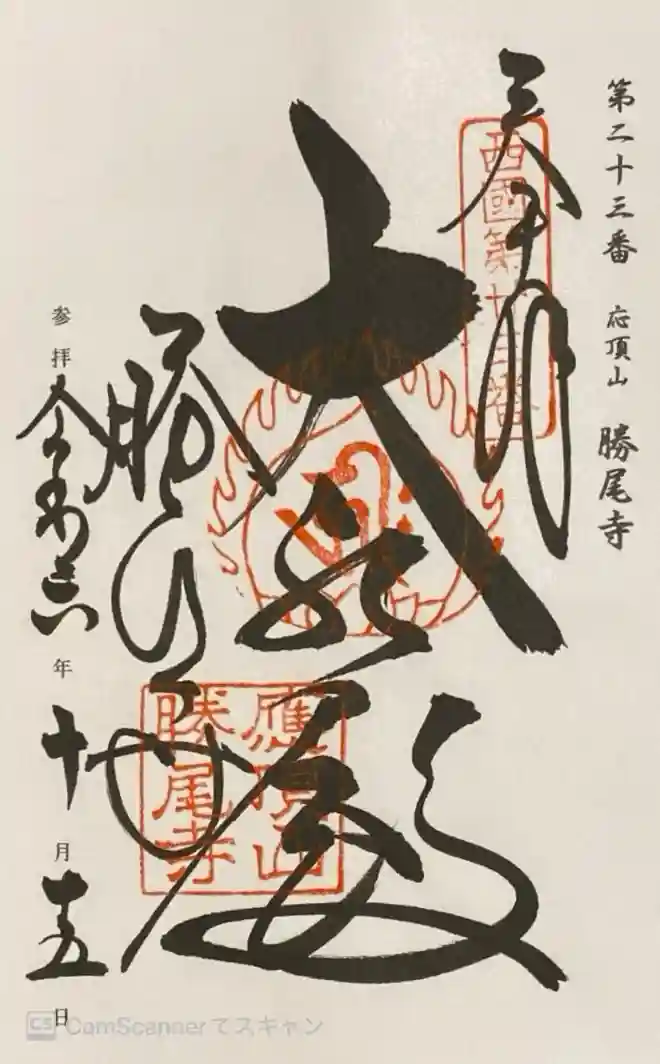 第二十三番 応頂山 勝尾寺
奉拝
西國第廿三番
大悲殿
勝尾寺
應頂山
勝尾寺
参拝 令和六年 十月 十五日
CS CamScanner でスキャン